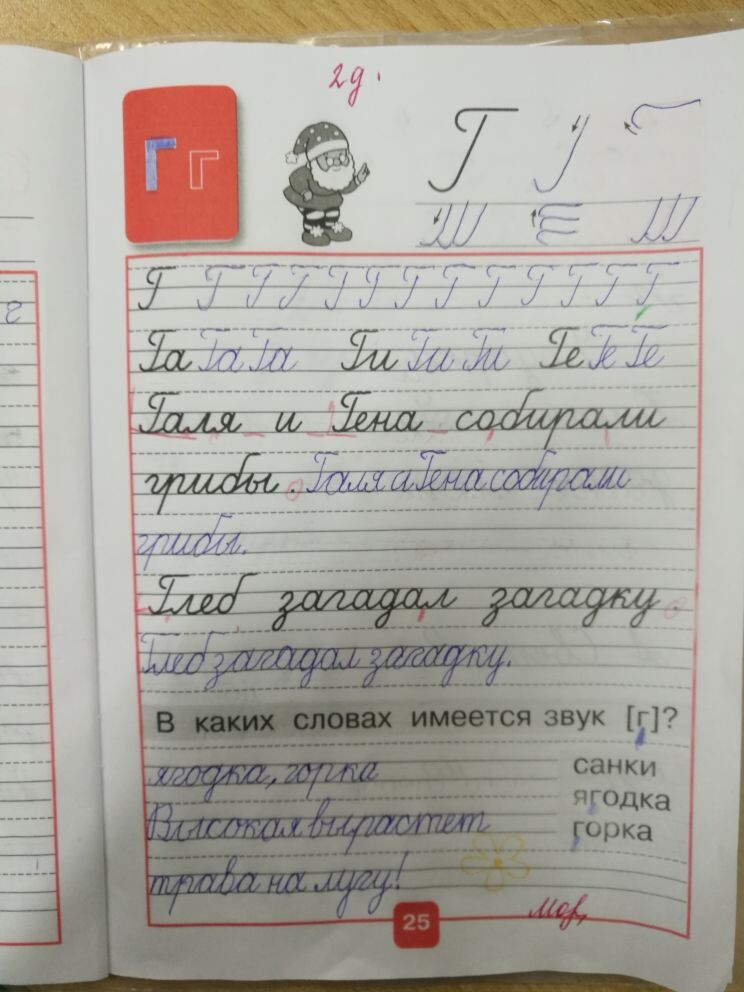 2д.
Г г
Г
Г Г Г Г Г Г Г Г Г Г Г Г Г
Га Га Га Ги Ги Ги Ге Ге Ге
Галя и Гена собирали
грибы. Галя и Гена собирали
грибы.
Глеб загадал загадку.
Глеб загадал загадку.
В каких словах имеется звук [г]?
ягодка, горка санки
ягодка
Высокая вырастет горка
трава на лугу!
25